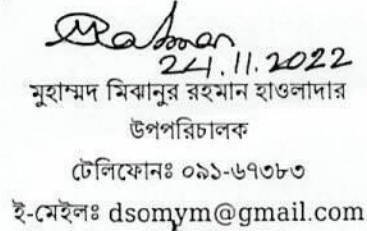 24.11.2022
মুহাম্মদ মিঝানুর রহমান হাওলাদার
উপপরিচালক
টেলিফোনঃ ০৯১-৬৭৩৮৩
ই-মেইলঃ dsomym@gmail.com